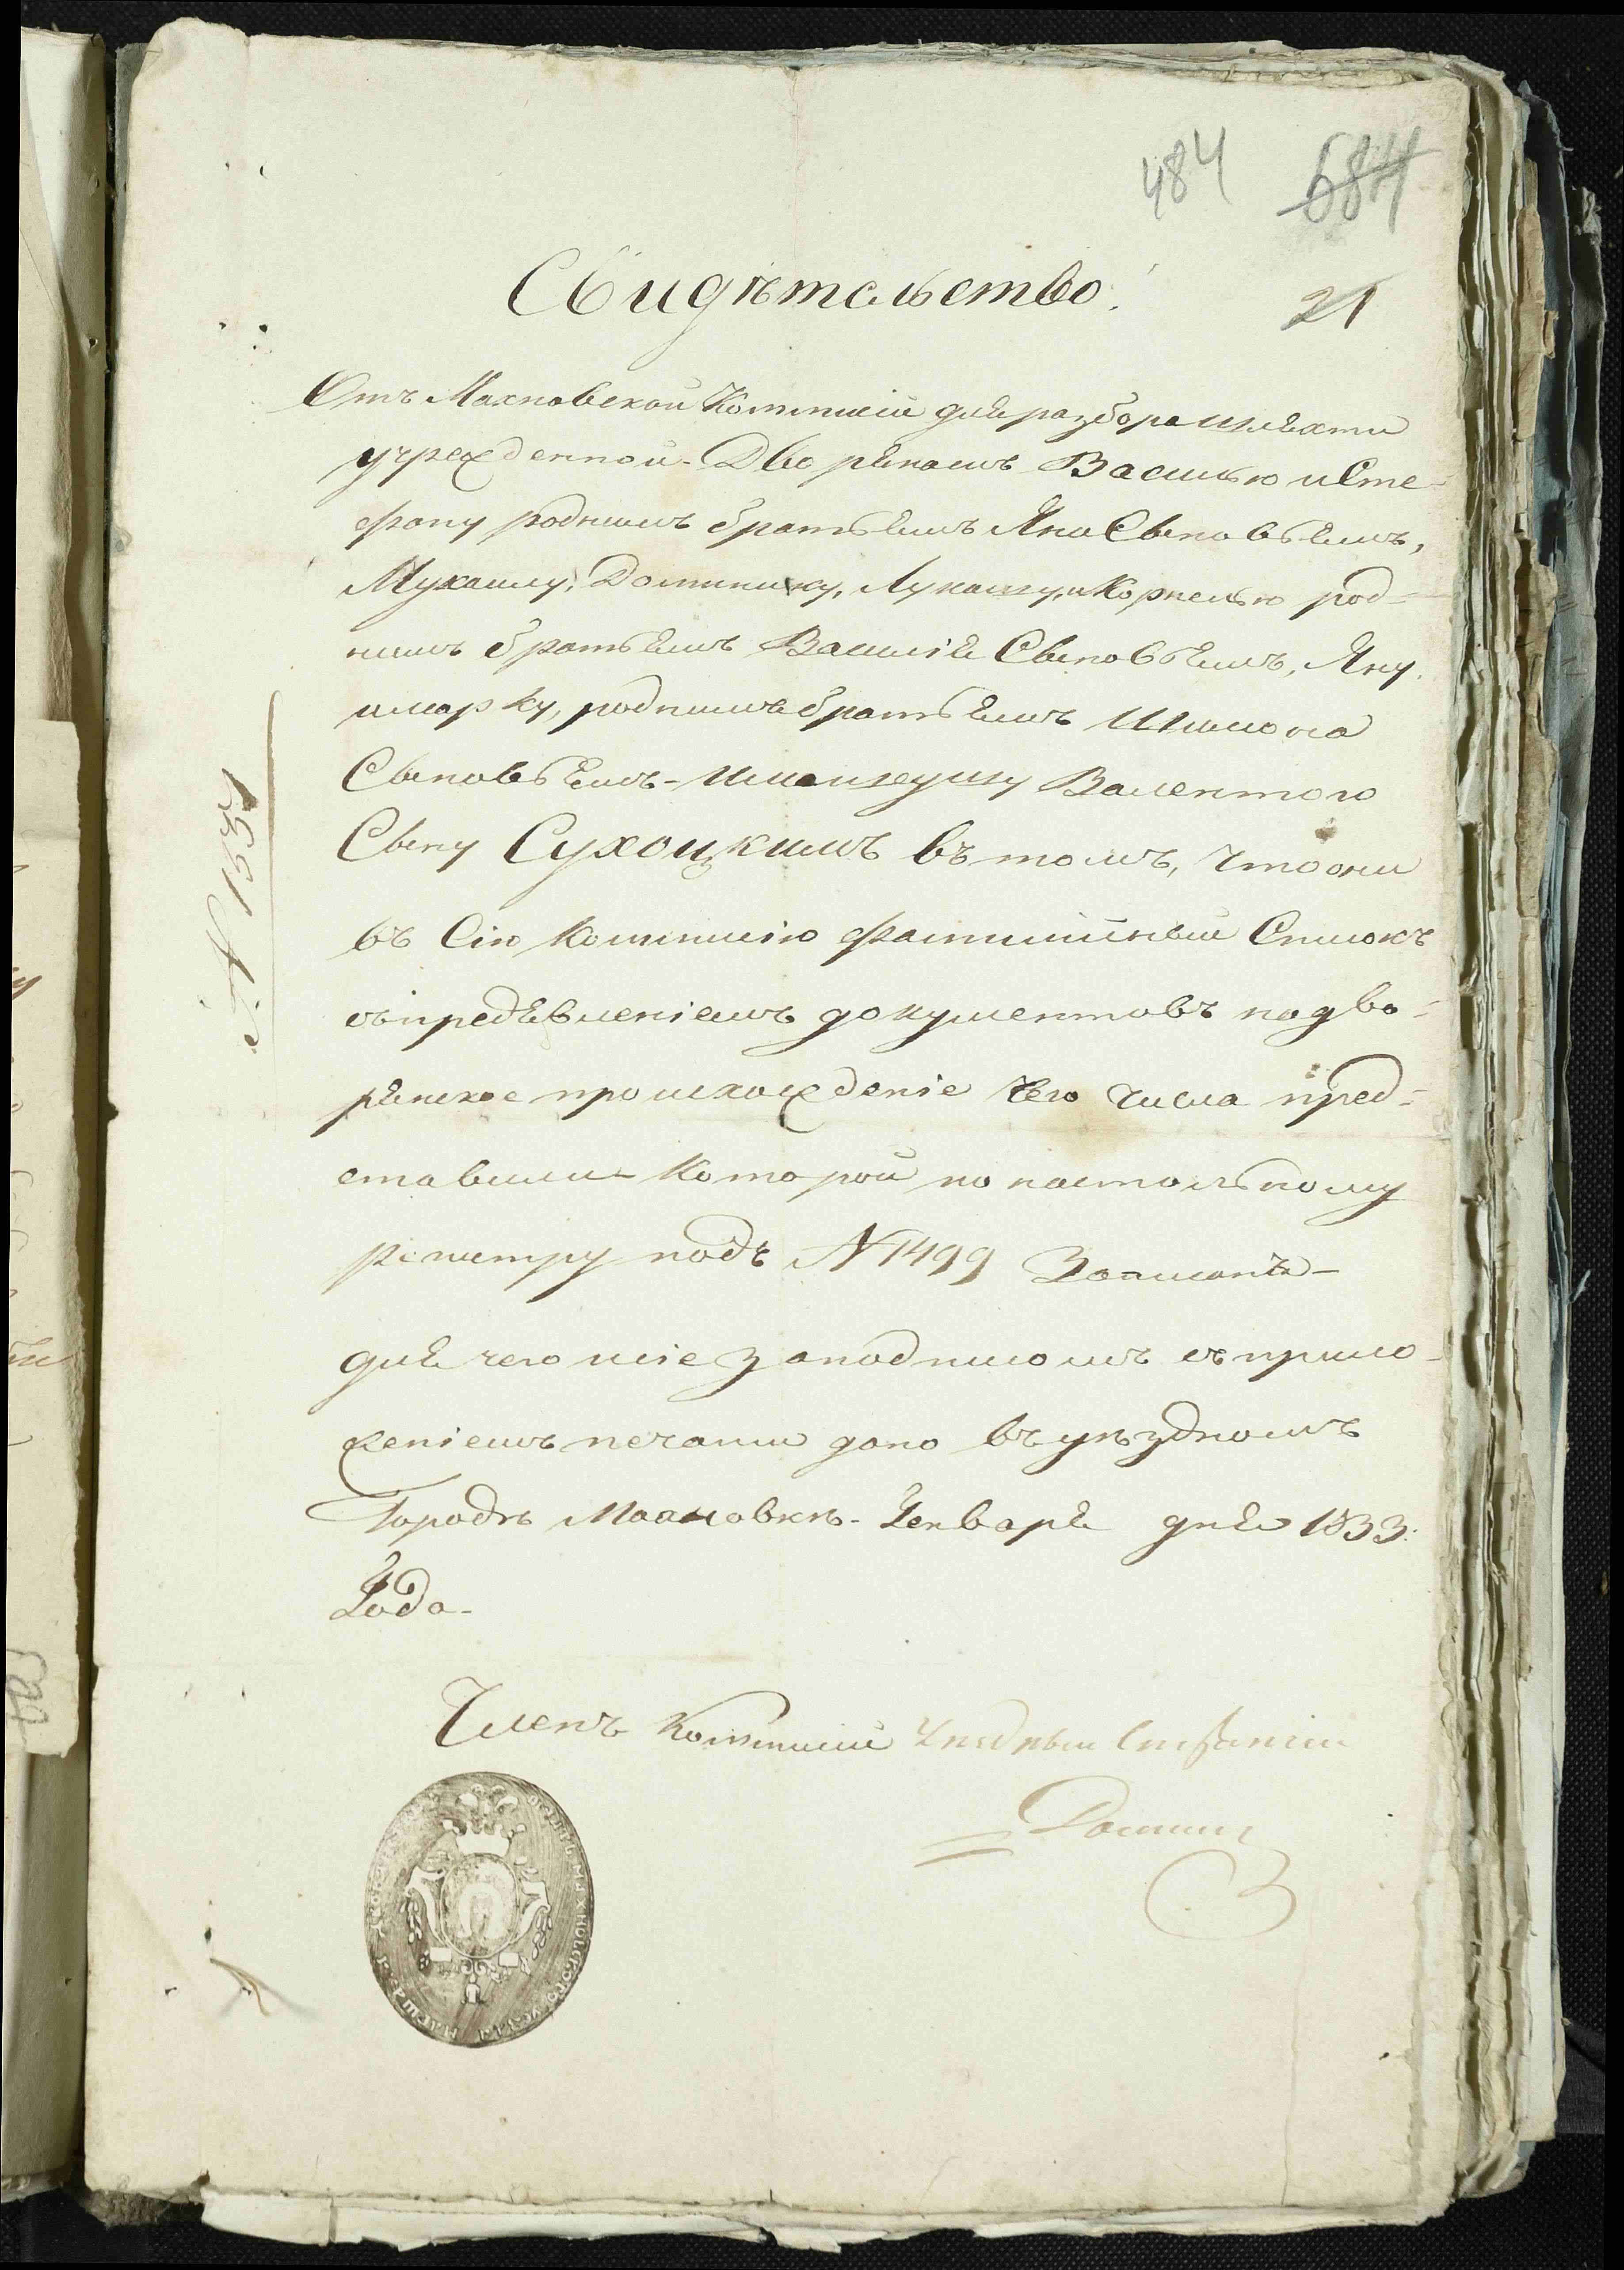 484 684
Свидѣтельство.
21
Отъ Махновской Коммисіи для разбора шляхти
учрежденной - Дворянамъ Василью и Сте-
фану роднимъ братьямъ Яна Сыновьямъ,
Михаилу, Доминику, Лукашу, и Корнелью род-
нимъ братьямъ Василія Сыновьямъ, Яну
и Марку, роднимъ братьямъ Шимона
Сыновьямъ - и Матеушу Валентого
Сыну Сухоцкимъ въ томъ, что они
въ Сію Коммисію Фамилийный Списокъ
съ предъявленіемъ документовъ на дво-
рянское происхожденіе сего числа пред-
ставили Которой по настольному
регистру подъ N 1499 Записанъ -
для чего сіе за подписомъ съ прило-
женіемъ печати дано въ уѣздномъ
Городѣ Махновкѣ - Генваря дня 1833:
Года -
Членъ Коммисіи
№ 1331